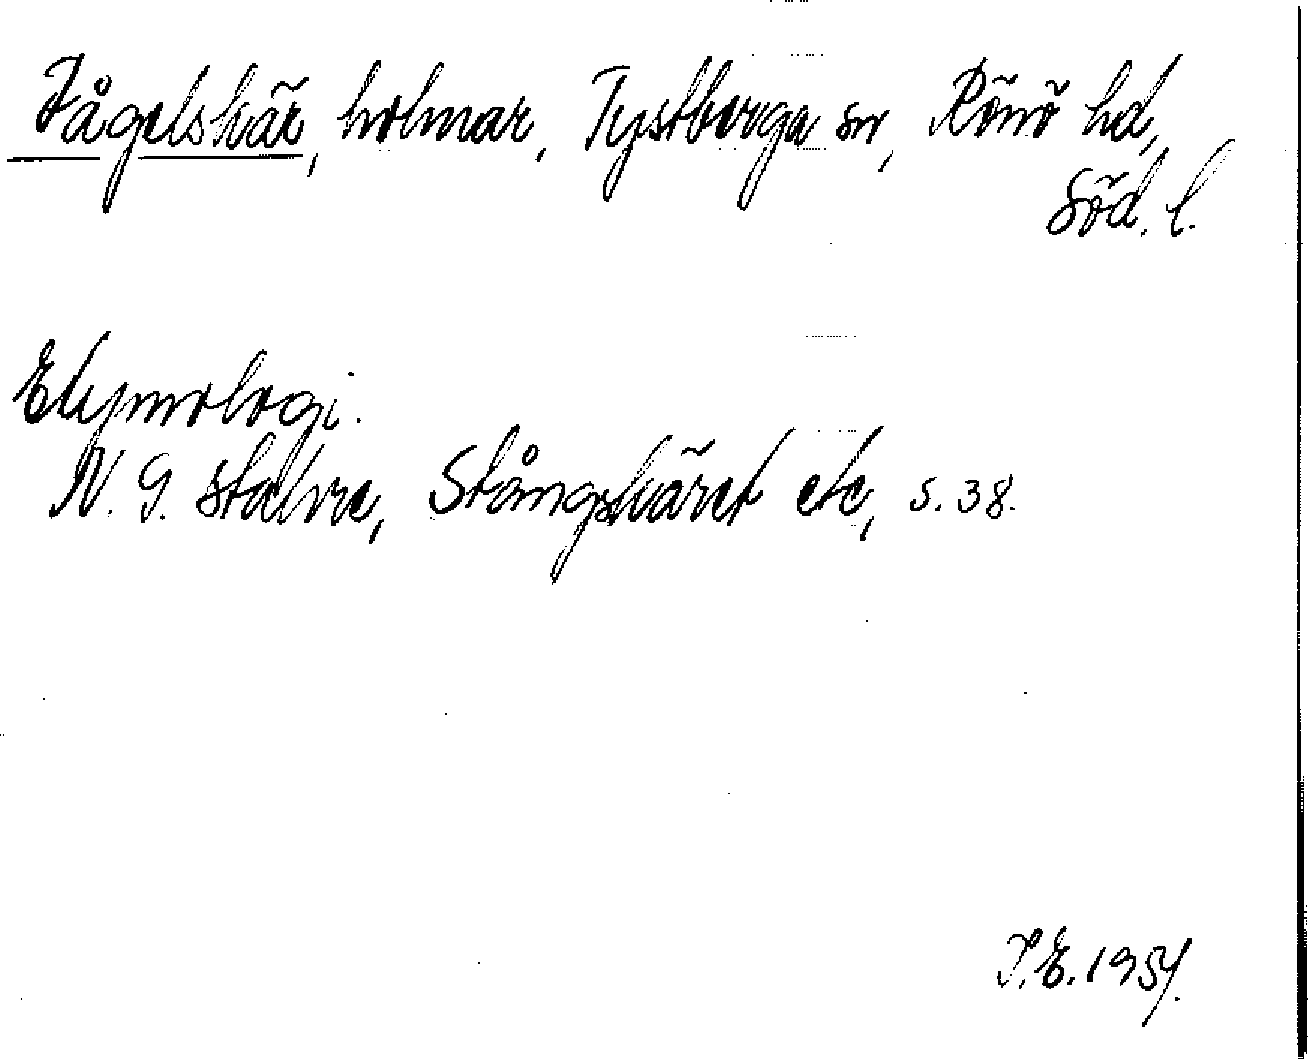 Fågelskär, holmar, Tystberga sn, Rönö hd,
Söd. l.
Etymologi.
N. G. Stahre, Stångskäret etc, s. 38.
1954.